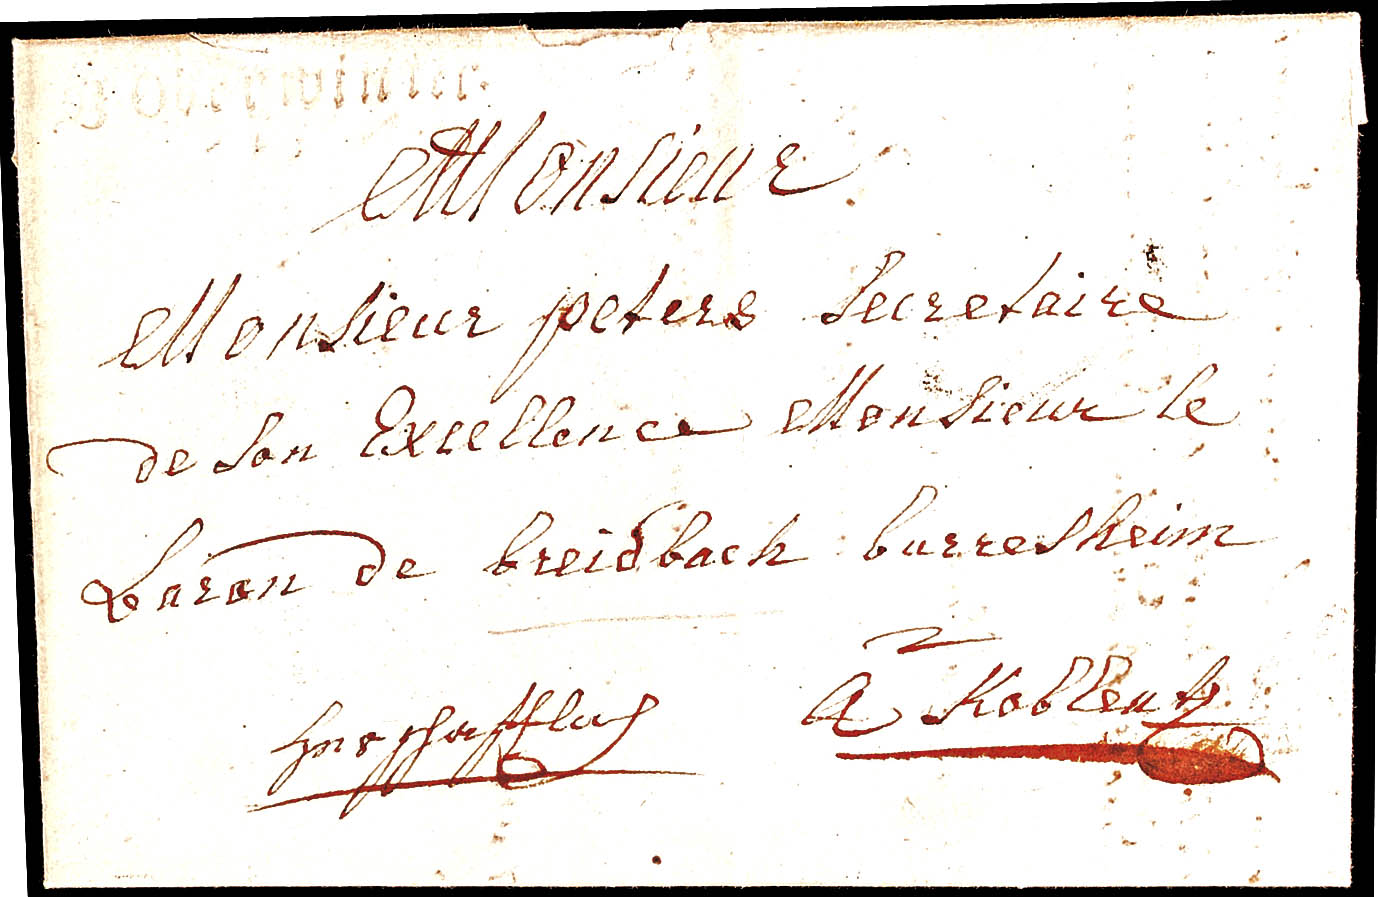 Oberwinter.
Monsieur
Monsieur peters Secretaire
de Son Excellence Monsieur le
baron de breidbach burresheim
a Koblentz